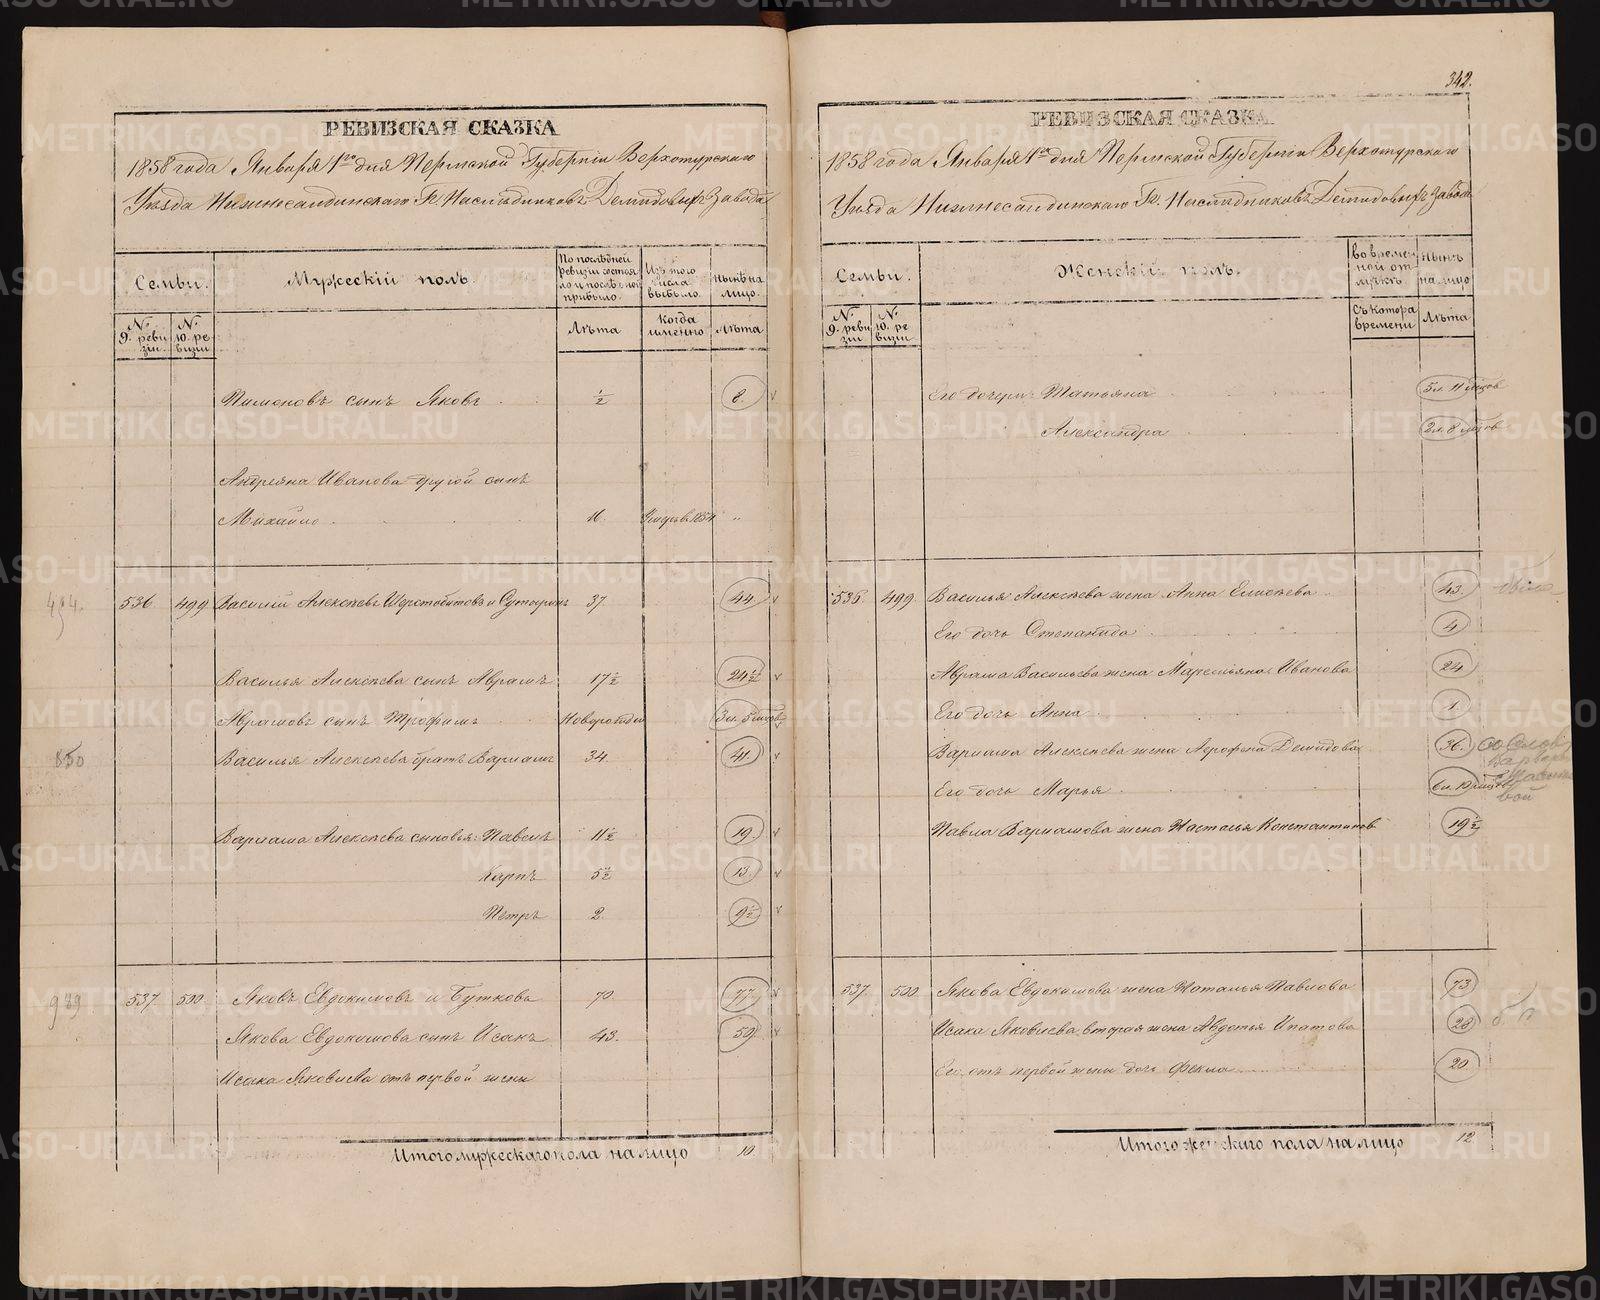 342.
РЕВИЗСКАЯ СКАЗКА
1858 года Января 1го дня Пермской Губернiи Верхотурскаго
Уѣзда Нижнесалдинскаго Гг. Наслѣдниковъ Демидовыхъ Завода
Семьи.
Мужескiй полъ.
По послѣдней ревизiи состояло и послѣ оной прибыло.
Изъ того числа выбыло.
Нынѣ на лицо.
№ 9. ревизiи.
№ 10. ревизiи
Лѣта
Когда именно
Лѣта
Пимоновъ сынъ Яковъ ½ 8.
Андреяна Иванова другой сынъ
Михайло 16. 1854 "
494.
536. 499. Василiй Алексѣевъ Шерстобитовъ и 37. 44.
Василья Алексѣева сынъ Аврамъ 17½ 24½
Аврамовъ сынъ Трофимъ Новорожден 3 л. 5 мѣсов
850
Василья Алексѣева братъ Варламъ 34. 41.
Варлама Алексѣева сыновья: Павелъ 11½ 19.
Карпъ 5½ 13.
Петръ 2. 9½
989.
537. 500. Яковъ Евдокимовъ и Буткова 70. 77.
Якова Евдокимова сынъ Исакъ 43. 50.
Исака Яковлева отъ первой жены
Итого мужескаго пола на лицо 10.
РЕВИЗСКАЯ СКАЗКА
1858 года Января 1го дня Пермской Губернiи Верхотурскаго
Уѣзда Нижнесалдинскаго Гг. Наслѣдниковъ Демидовыхъ Завода
Семьи.
Женскiй полъ.
во временной отлучкѣ
Нынѣ на лицо
№ 9. ревизiи
№ 10. ревизiи
Съ котора времени
Лѣта
Его дочери: Татьяна 5 л. 11 мѣсов
Александра 2 л. 8 мѣсов
536. 499. Василья Алексѣева жена Анна Елисѣева 43.
Его дочь Степанида 4
Аврама Васильева жена Маремьяна Иванова 24
Его дочь Анна 1.
Варлама Алексѣева жена Аграфена Демидова 36.
Его дочь Марья 6 л. 10 мѣсов
Павла Варламова жена Настасья Константинов 19½
537. 500. Якова Евдокимова жена Наталья Павлова 73
Исака Яковлева вторая жена Авдотья Ипатова 28
Его отъ первой жены дочь Фекла 20.
Итого женскаго пола на лицо 12
METRIKI.GASO-URAL.RU